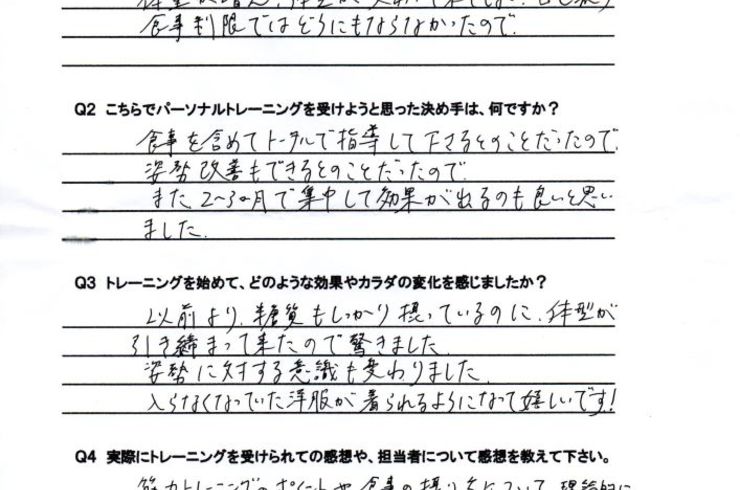 食事制限ではどうにもならなかったので
Q2 こちらでパーソナルトレーニングを受けようと思った決め手は、何ですか?
食事を含めてトータルで指導して下さるとのことだったので、
姿勢改善もできるとのことだったので
また、2〜3ヶ月で集中して効果が出るのも良いと思い
ました。
Q3 トレーニングを始めて、どのような効果やカラダの変化を感じましたか?
以前より、糖質もしっかり摂っているのに、体型が
引き締まって来たので驚きました
姿勢に対する意識も変わりました。
入らなくなっていた洋服が着られるようになって嬉しいです!
Q4 実際にトレーニングを受けられての感想や、担当者について感想を教えて下さい。
筋力トレーニングのポイントや食事の摂り方について、理論的に